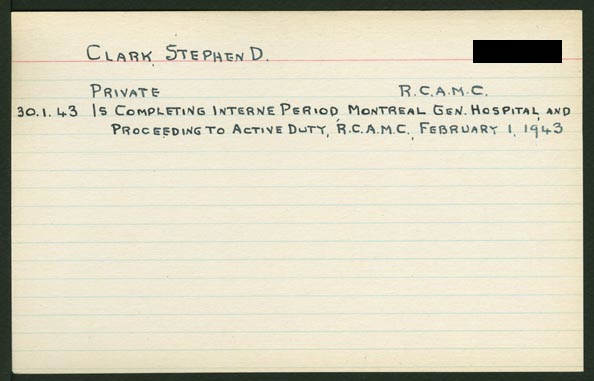 CLARK, STEPHEN D.
PRIVATE R.C.A.M.C.
30.1.43 IS COMPLETING INTERNE PERIOD, MONTREAL GEN. HOSPITAL, AND
PROCEEDING TO ACTIVE DUTY, R.C.A.M.C., FEBRUARY 1, 1943